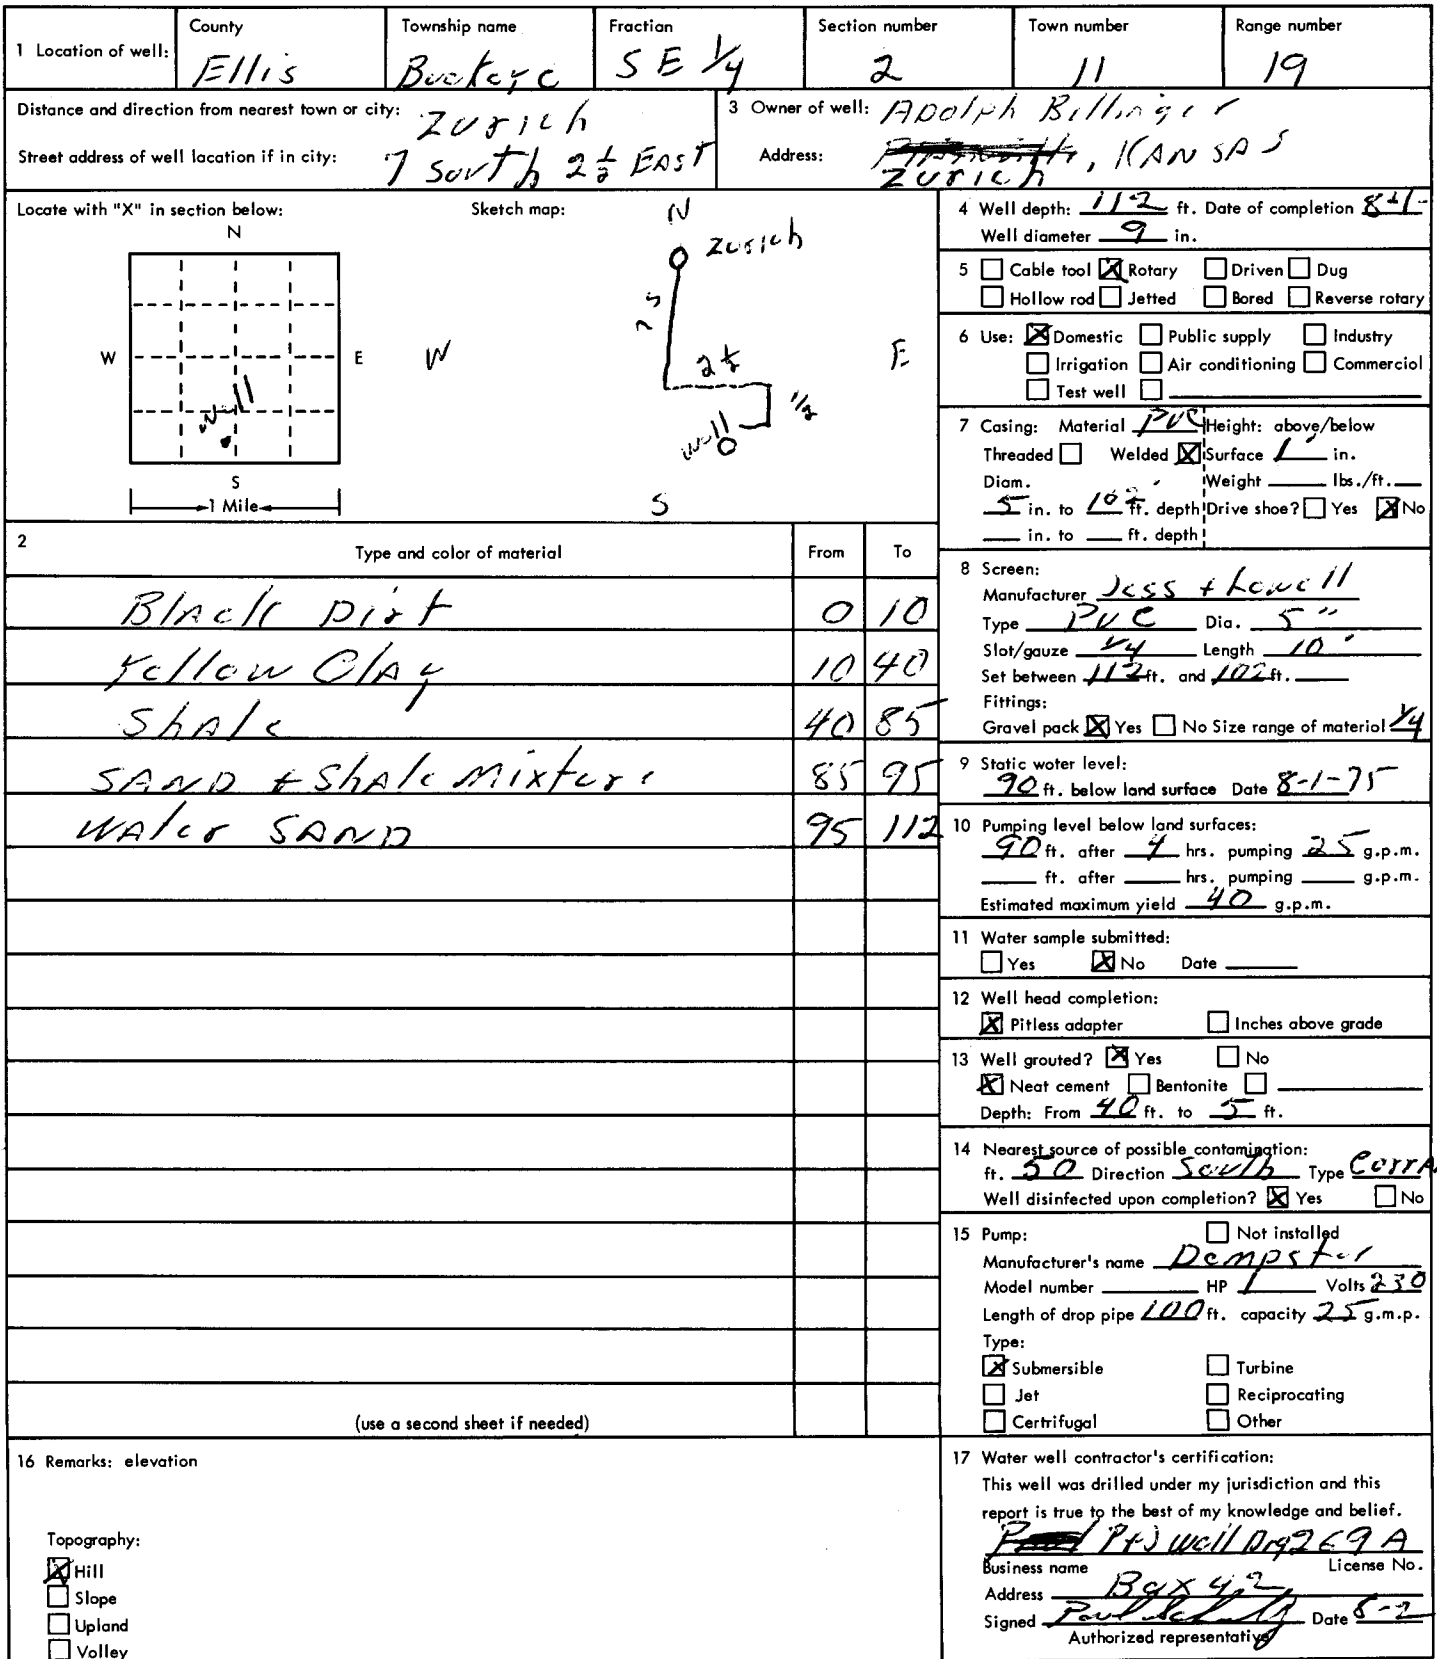 1 Location of well: County Township name Fraction Section number Town number Range number
Ellis Buckeye SE 1/4 2 11 19
Distance and direction from nearest town or city: Zurich
Street address of well location if in city: 7 South 2 1/2 EAST
3 Owner of well: Adolph Billinger
Address: , KANSAS
Zurich
Locate with "X" in section below: Sketch map:
N
W E
S
1 Mile
Well
N
Zurich
7 S
2 1/2
1/2
W E
well
S
4 Well depth: 112 ft. Date of completion
Well diameter 9 in.
5 Cable tool Rotary Driven Dug
Hollow rod Jetted Bored Reverse rotary
6 Use: Domestic Public supply Industry
Irrigation Air conditioning Commercial
Test well
7 Casing: Material PVC Height: above/below
Threaded Welded Surface 1' in.
Diam. Weight lbs./ft.
5 in. to 102' ft. depth Drive shoe? Yes No
in. to ft. depth
2 Type and color of material From To
Black Dirt 0 10
Yellow Clay 10 40
Shale 40 85
SAND + Shale Mixture 85 95
Water SAND 95 112
(use a second sheet if needed)
8 Screen:
Manufacturer Jess + Lowell
Type PVC Dia. 5"
Slot/gauze 1/4 Length 10'
Set between 112 ft. and 102 ft.
Fittings:
Gravel pack Yes No Size range of material 1/4
9 Static water level:
90 ft. below land surface Date 8-1-75
10 Pumping level below land surfaces:
90 ft. after 4 hrs. pumping 25 g.p.m.
ft. after hrs. pumping g.p.m.
Estimated maximum yield 40 g.p.m.
11 Water sample submitted:
Yes No Date
12 Well head completion:
Pitless adapter Inches above grade
13 Well grouted? Yes No
Neat cement Bentonite
Depth: From 40 ft. to 5 ft.
14 Nearest source of possible contamination:
ft. 50 Direction South Type CorrA
Well disinfected upon completion? Yes No
15 Pump: Not installed
Manufacturer's name Dempster
Model number HP 1 Volts 230
Length of drop pipe 100 ft. capacity 25 g.m.p.
Type:
Submersible Turbine
Jet Reciprocating
Certrifugal Other
16 Remarks: elevation
Topography:
Hill
Slope
Upland
Volley
17 Water well contractor's certification:
This well was drilled under my jurisdiction and this
report is true to the best of my knowledge and belief.
Well Drg 269 A
Business name License No.
Address Box 42
Signed Paul Date 8-2
Authorized representative